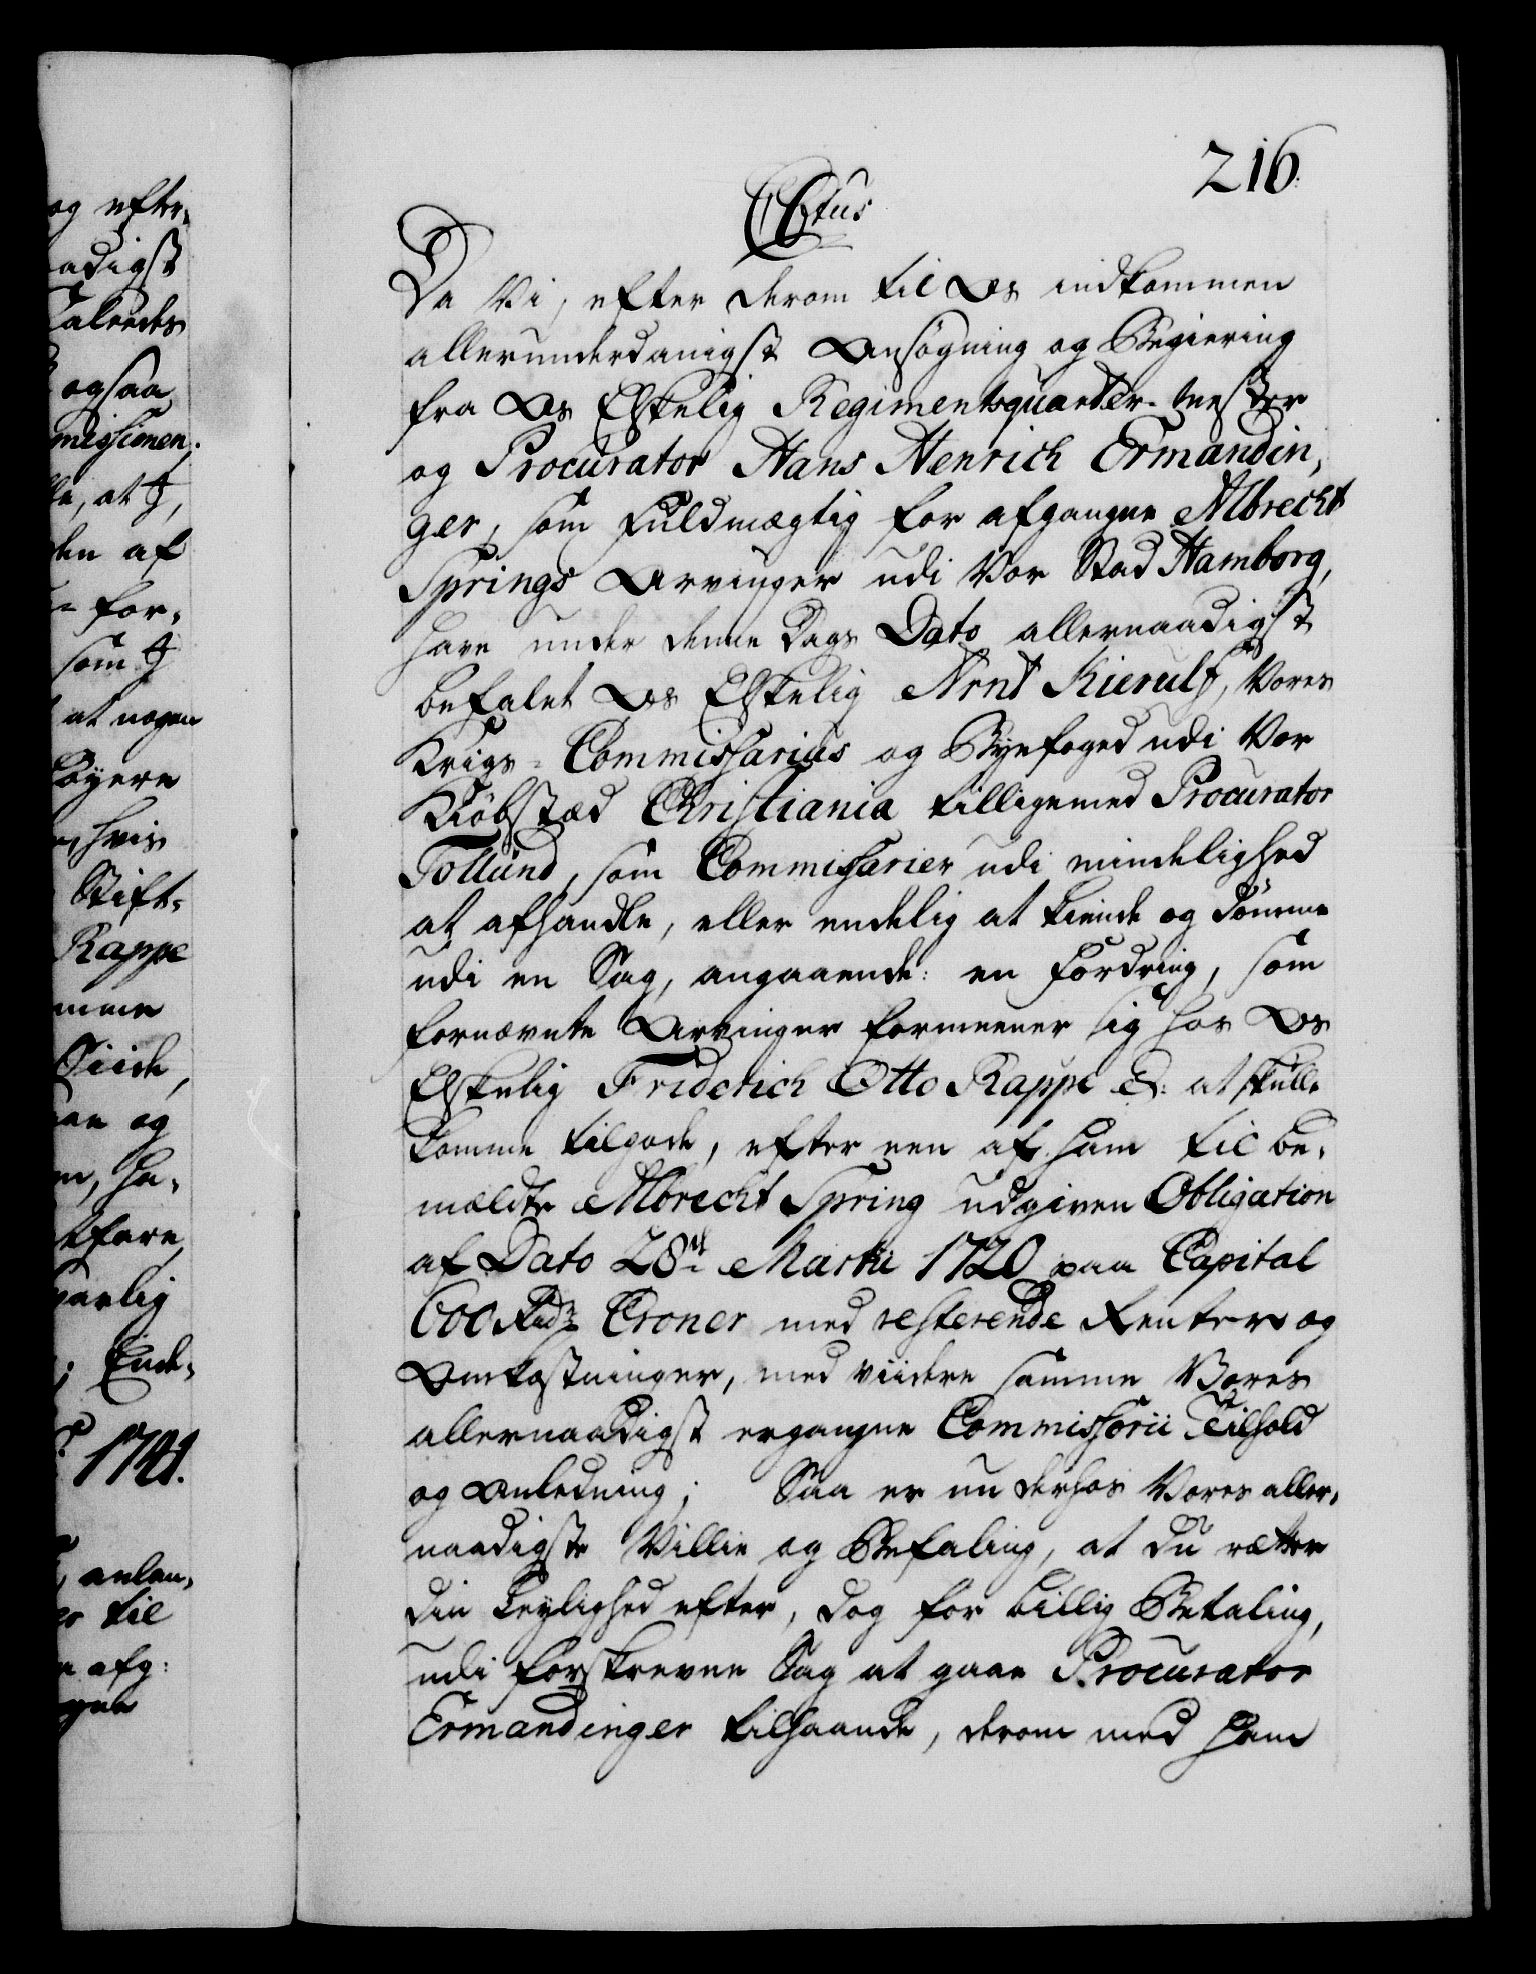 216.
C6tus
Da Vi, efter derom til Os indkommen
allerunderdanigst Ansøgning og Begiering
fra Os Elskelig Regimentsquarteer-Mester
og Procurator Hans Henrich Ermandin,
ger, som Fuldmægtig for afgangne Albrecht
Springs Arvinger udi Vor Stad Hamborg,
have under denne Dags Dato allernaadigst
befalet Os Elskelig Arnt Kierulf, Vores
Krigs-Commissarius og Byefoged udi Vor
Kiøbstæd Christiania tilligemed Procurator
Tollund, som Commissarier udi mindelighed
at afhandle, eller endelig at kiende og dømme
udi en Sag, angaaende: en fordring, som
fornævnte Arvinger formeener sig hos Os
Elskelig Friderich Otto Rappe at skulle
komme tilgode, efter een af ham til be,
mældte Albrecht Spring udgiven Obligation
af Dato 28de Martii 1720 paa Capital
600 Rdr Croner med resterende Renter og
Omkostninger, med viidere samme Vores
allernaadigst ergangne Commissorii Tilhold
og Anledning; Saa er nu derhos Vores aller,
naadigste Villie og Befaling, at du retter
din Leylighed efter, dog for billig Betaling,
udi forskrevne Sag at gaae Procurator
Ermandinger tilhaande, derom med ham
og efter,
aadigst
Taleedes
ogsaa
missionen,
lle, at I,
den af
for,
som I
at nogen
bøyere
hvis
Stift,
Rappe
omme
Siide,
aae og
ha,
tfare
varlig
Ende,
1741.
anlan,
til
afg:
gne